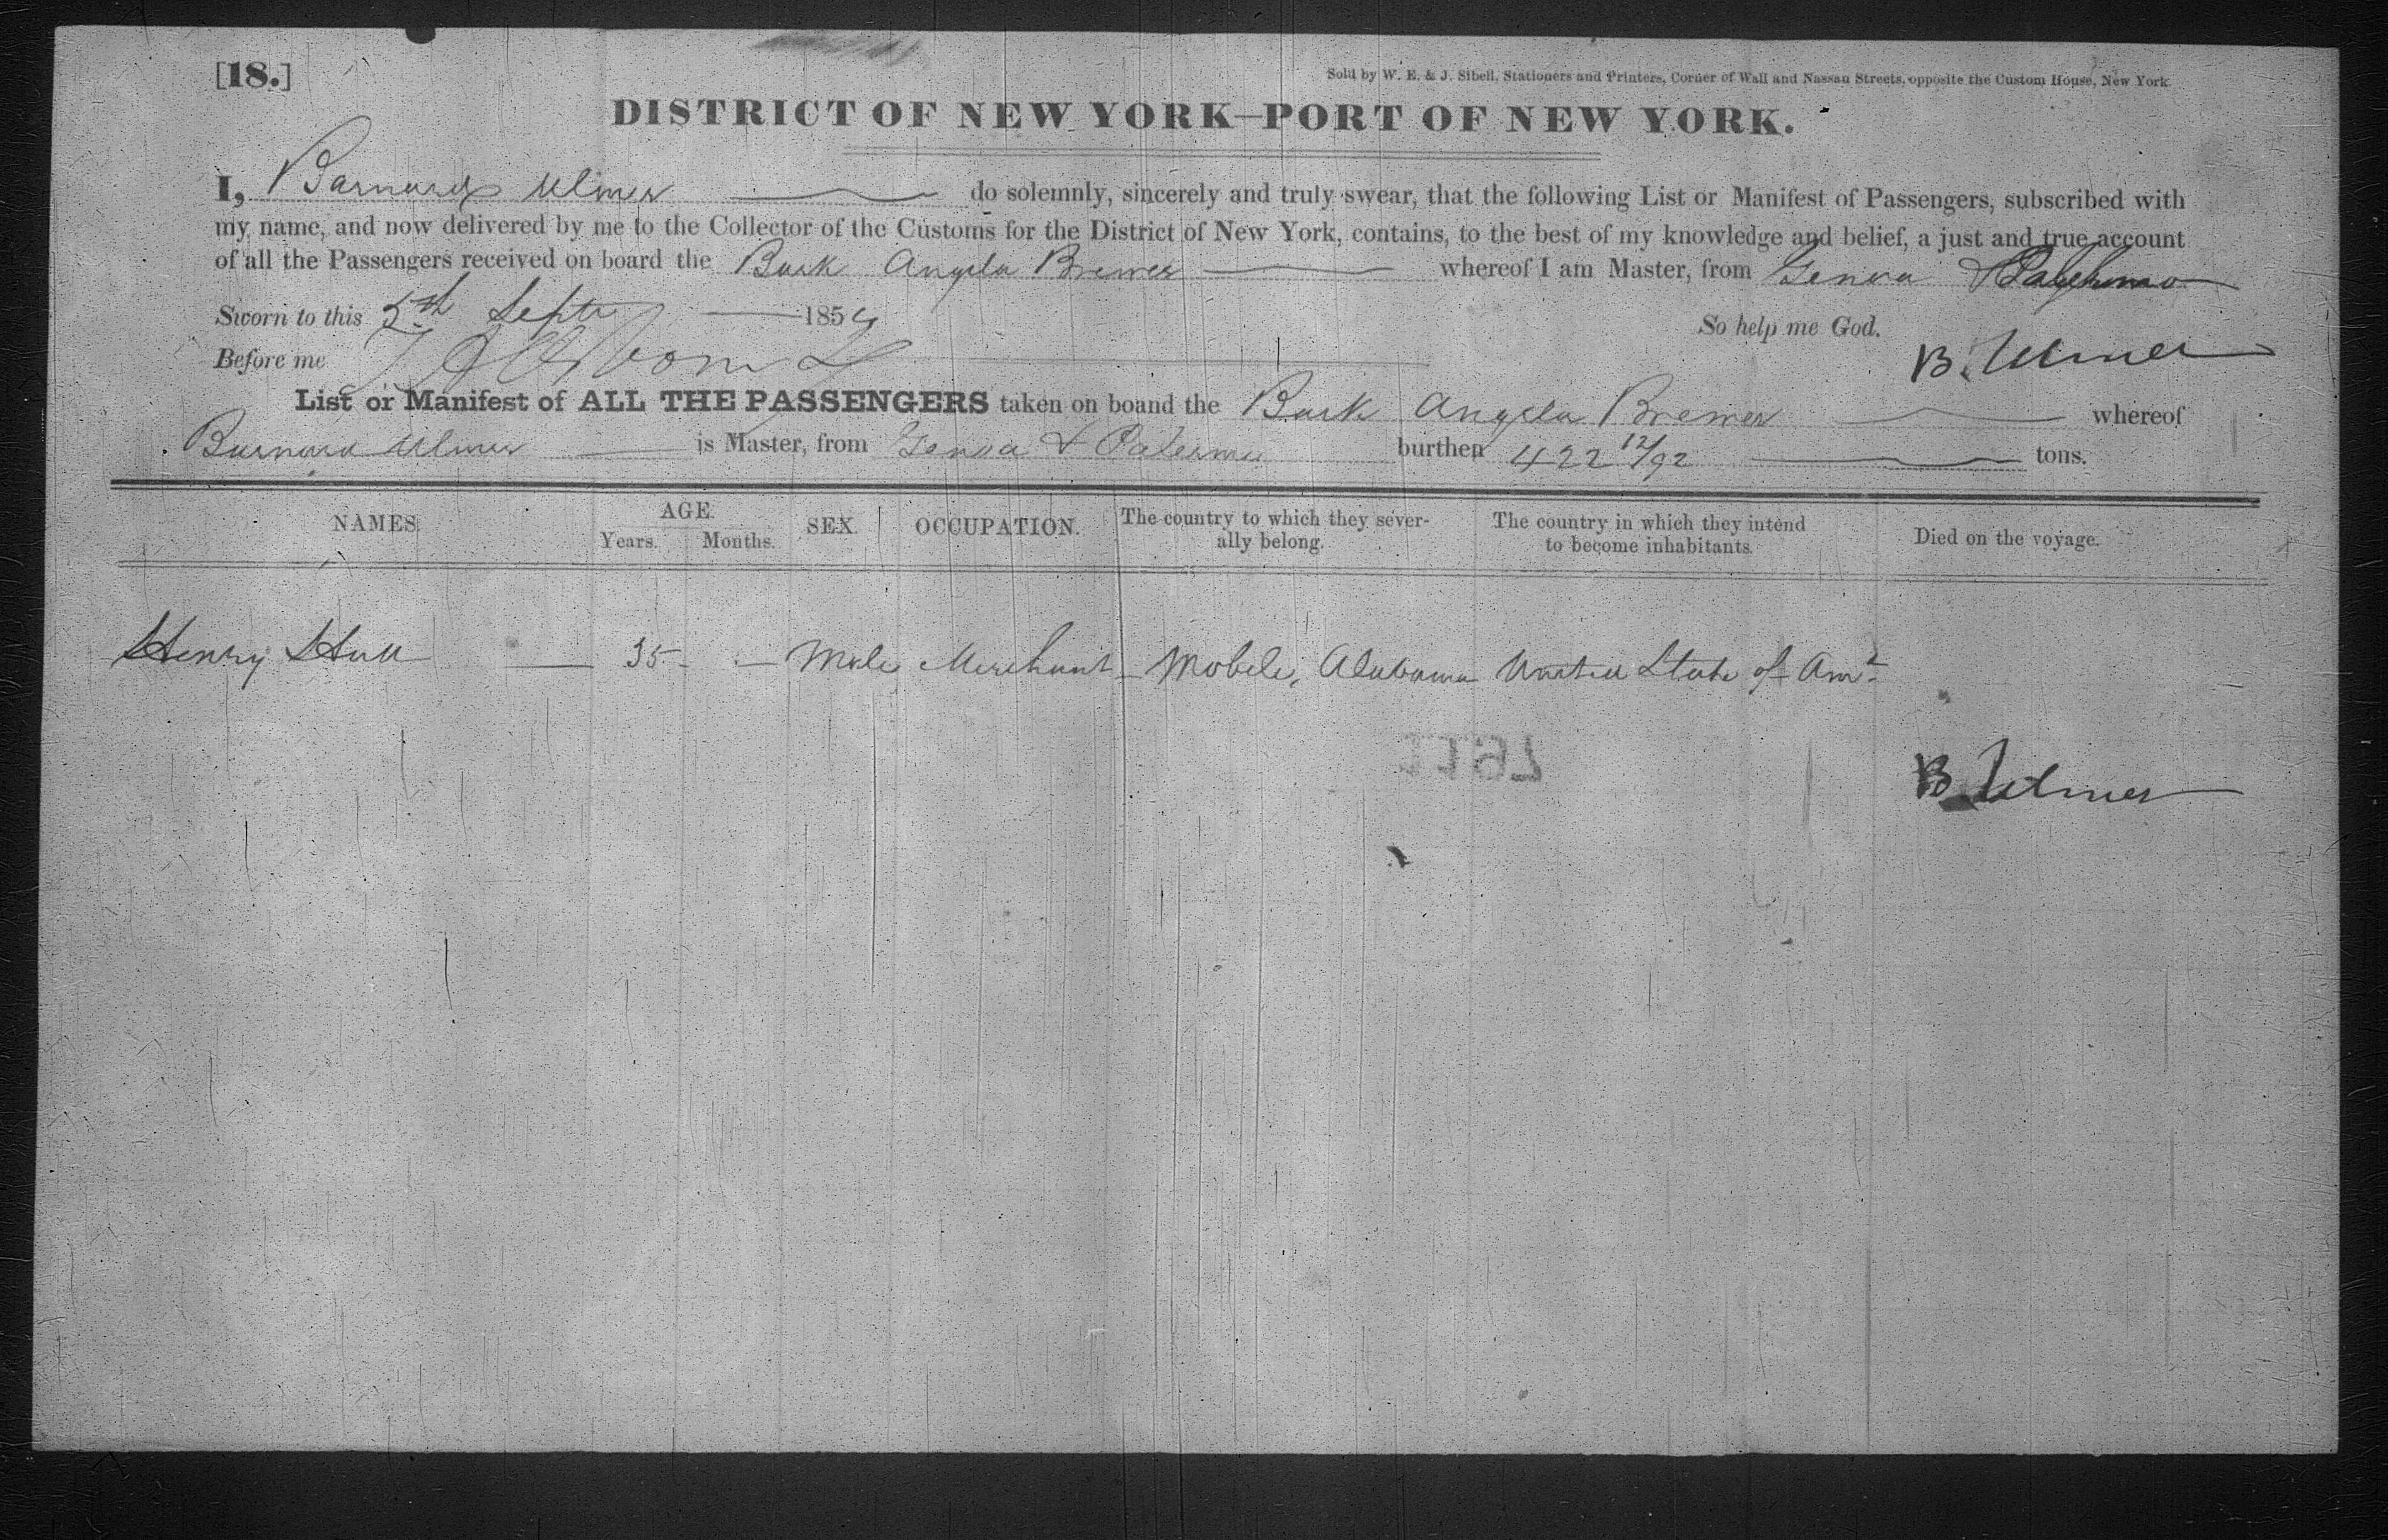 [18.]
Sold by W. E. & J. Sibell, Stationers and Printers, Corner of Wall and Nassau Streets, opposite the Custom House, New York.
DISTRICT OF NEW YORK—PORT OF NEW YORK.
I, Barnard Ulmer do solemnly, sincerely and truly swear, that the following List or Manifest of Passengers, subscribed with
my name, and now delivered by me to the Collector of the Customs for the District of New York, contains, to the best of my knowledge and belief, a just and true account
of all the Passengers received on board the Bark Angela Brewer whereof I am Master, from Genoa & Palermo
Sworn to this 5th Septr 185
So help me God.
Before me
B. Ulmer
List or Manifest of ALL THE PASSENGERS taken on board the Bark Angela Brewer whereof
Barnard Ulmer is Master, from Genoa & Palermo burthen 422 12/92 tons.
NAMES. AGE. Years. Months. SEX. OCCUPATION. The country to which they severally belong. The country in which they intend to become inhabitants. Died on the voyage.
Henry Hull — 35 — Male Merchant Mobile, Alabama United State of Ama
B. Ulmer